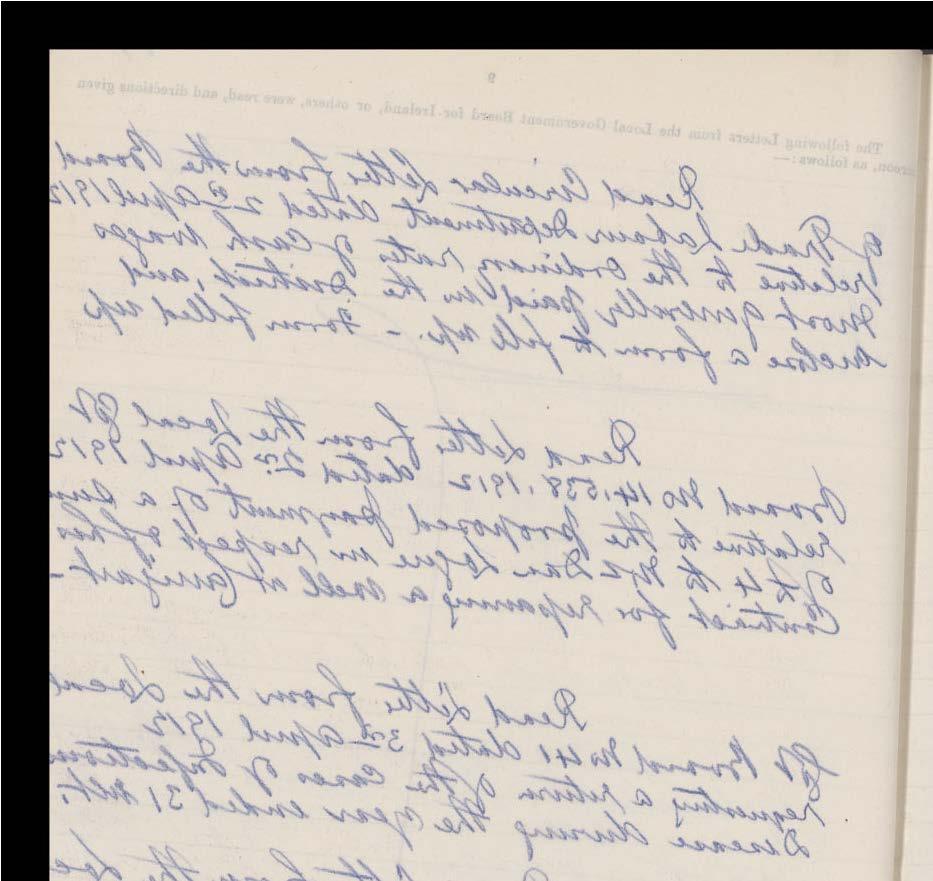 9
The following Letters from the Local Government Board for Ireland, or others, were read, and directions given
ereon, as follows:—
Read Circular Letter from the Board
of Trade Labour Department dated 2nd April 1912
relative to the ordinary rates of Cash Wages
most generally paid in the District, and
enclose a form to fill up. - Form filled up
Read Letter from the Local Gt
Board No 14.538. 1912 dated 2nd April 1912
relative to the proposed payment of a sum
of £4 to Mr Dan Logue in respect of his
Contract for repairing a well at
Read Letter from the Local
Gt Board No 41 dated 3rd April 1912
requesting a return of the cases of Infectious
Disease during the year ended 31
from the Loc